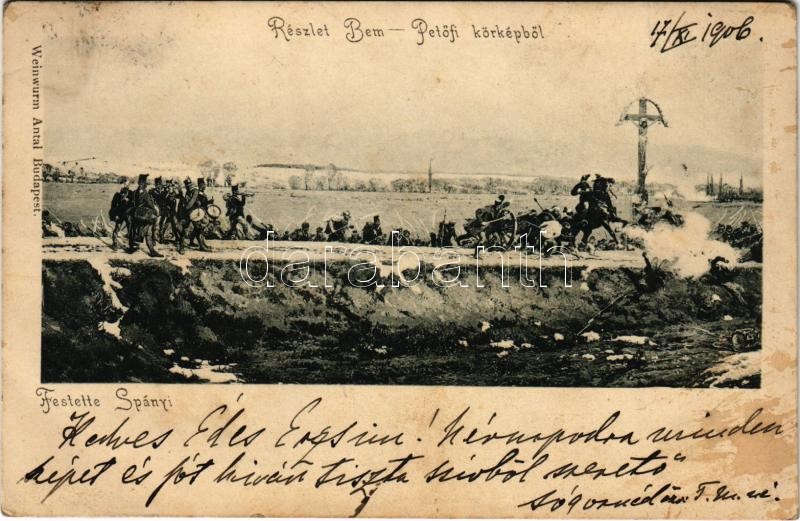 Részlet Bem — Petőfi körképből
17/XI 1906.
Weinwurm Antal Budapest.
darabanth
Festette Spányi
Kedves Édes Erzsim! Névnapodra minden
szépet és jót kiván tiszta szivből szerető"
sógornéd T. M. né.